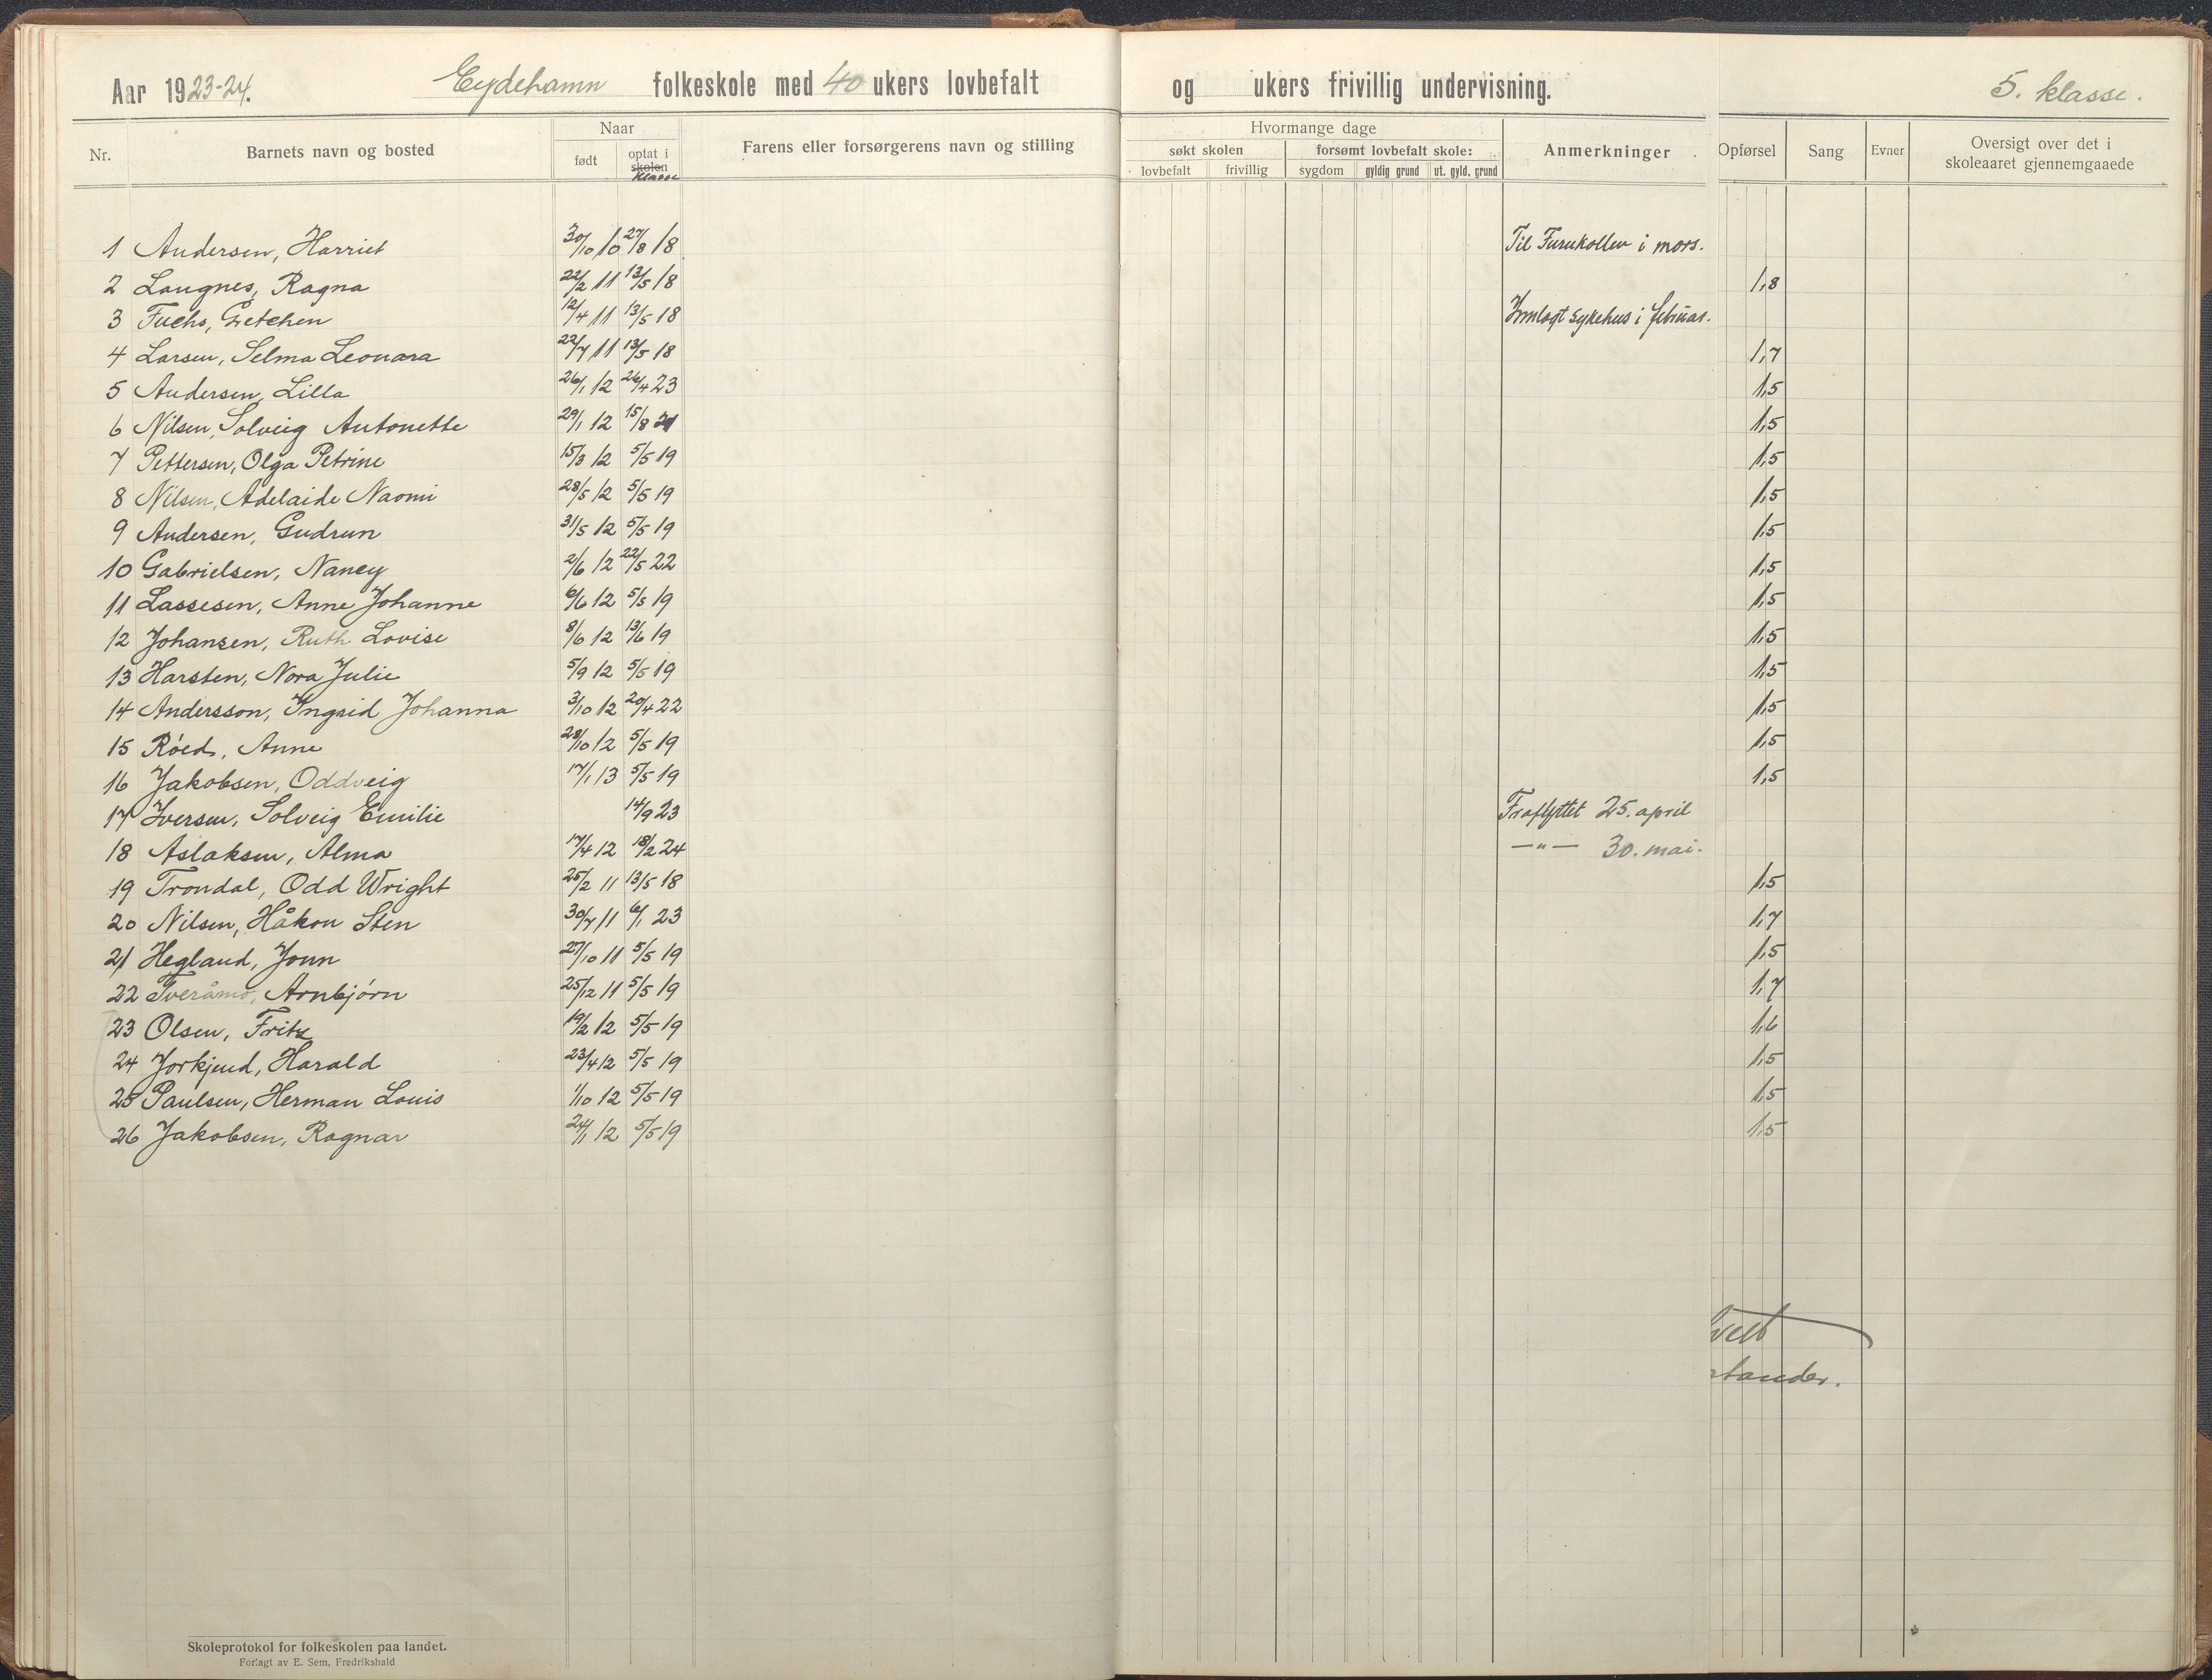 Aar 1923-24. Eydehamn folkeskole med 40 ukers lovbefalt og ukers frivillig undervisning. 5. klasse.
Nr. Barnets navn og bosted Naar født optat i skolen klasse Farens eller forsørgerens navn og stilling Hvormange dage søkt skolen lovbefalt frivillig forsømt lovbefalt skole: sygdom gyldig grund ut. gyld. grund Anmerkninger Opførsel Sang Evner Oversigt over det i skoleaaret gjennemgaaede
1 Andersen, Harriet 30/10 10 27/8 18 Til Furukollen i mars.
2 Langnes, Ragna 22/2 11 13/5 18 1,8
3 Fuchs, Gretchen 12/4 11 13/5 18 Innlagt sykehus i februar.
4 Larsen, Selma Leonara 22/7 11 13/5 18 1,7
5 Andersen, Lilla 26/1 12 26/4 23 1,5
6 Nilsen, Solveig Antonette 29/1 12 15/8 21 1,5
7 Pettersen, Olga Petrine 15/3 12 5/5 19 1,5
8 Nilsen, Adelaide Naomi 28/5 12 5/5 19 1,5
9 Andersen, Gudrun 31/5 12 5/5 19 1,5
10 Gabrielsen, Nancy 2/6 12 22/5 22 1,5
11 Lassesen, Anne Johanne 6/6 12 5/5 19 1,5
12 Johansen, Ruth Lovise 8/6 12 13/6 19 1,5
13 Harsten, Nora Julie 5/9 12 5/5 19 1,5
14 Andersson, Ingrid Johanna 3/10 12 20/4 22 1,5
15 Röed, Anne 28/10 12 5/5 19 1,5
16 Jakobsen, Oddveig 17/1 13 5/5 19 1,5
17 Iversen, Solveig Emilie 14/9 23 Fraflyttet 25. april
18 Aslaksen, Alma 17/4 12 18/2 24 —"— 30. mai.
19 Trondal, Odd Wright 25/2 11 13/5 18 1,5
20 Nilsen, Håkon Sten 30/7 11 6/1 23 1,7
21 Hegland, Jonn 27/10 11 5/5 19 1,5
22 Tveråmo, Arnbjörn 25/12 11 5/5 19 1,7
23 Olsen, Fritz 19/2 12 5/5 19 1,6
24 Jorkjend, Harald 23/4 12 5/5 19 1,5
25 Paulsen, Herman Louis 1/10 12 5/5 19 1,5
26 Jakobsen, Ragnar 24/1 12 5/5 19 1,5
Skoleprotokol for folkeskolen paa landet.
Forlagt av E. Sem, Fredrikshald